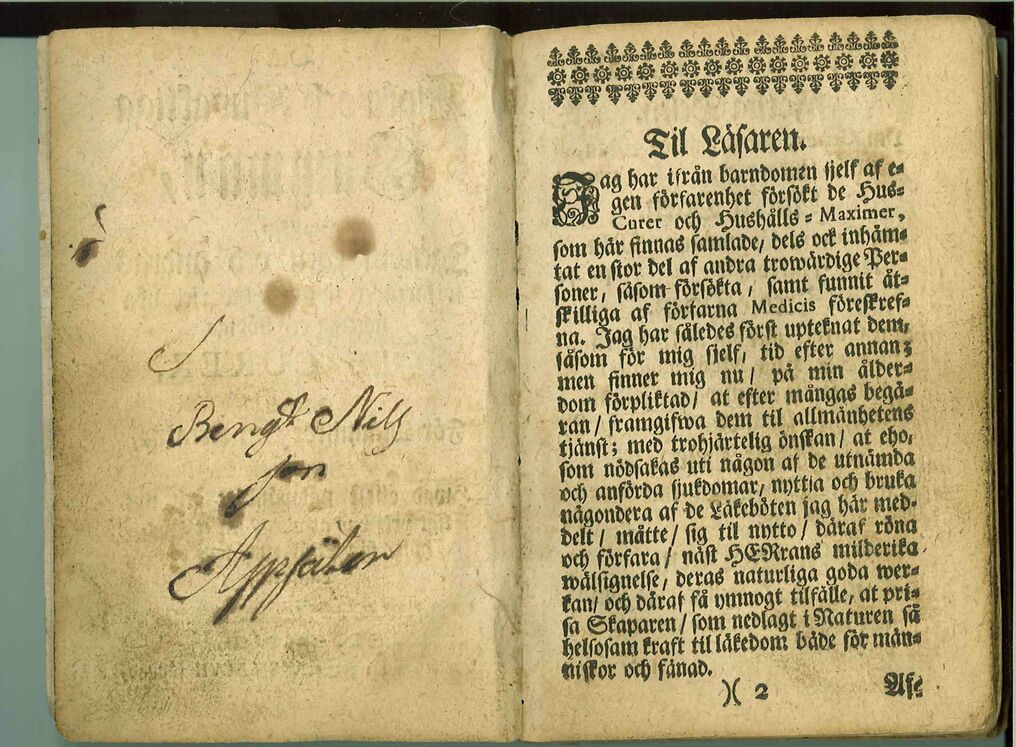 Bengt Nils
son
Appsätan
Til Läsaren.
Jag har ifrån barndomen sjelf af e-
gen förfarenhet försökt de Hus-
Curer och Hushålls-Maximer,
som här finnas samlade/ dels ock inhäm-
tat en stor del af andra trowärdige Per-
soner, såsom försökta, samt funnit åt-
skilliga af förfarna Medicis föreskref-
na. Jag har således först upteknat dem,
såsom för mig sjelf, tid efter annan;
men finner mig nu/ på min ålder-
dom förpliktad/ at efter mångas begä-
ran/ framgifwa dem til allmänhetens
tjänst; med trohjärtelig önskan/ at eho,
som nödsakas uti någon af de utnämda
och anförda sjukdomar, nyttja och bruka
någondera af de Läkeböten jag här med-
delt/ måtte/ sig til nytto/ däraf röna
och förfara/ näst HERrans milderika
wälsignelse, deras naturliga goda wer-
kan/ och däraf få ymnogt tilfälle, at pri-
sa Skaparen/ som nedlagt i Naturen så
helsosam kraft til läkedom både för män-
niskor och fänad.
)( 2
Afs